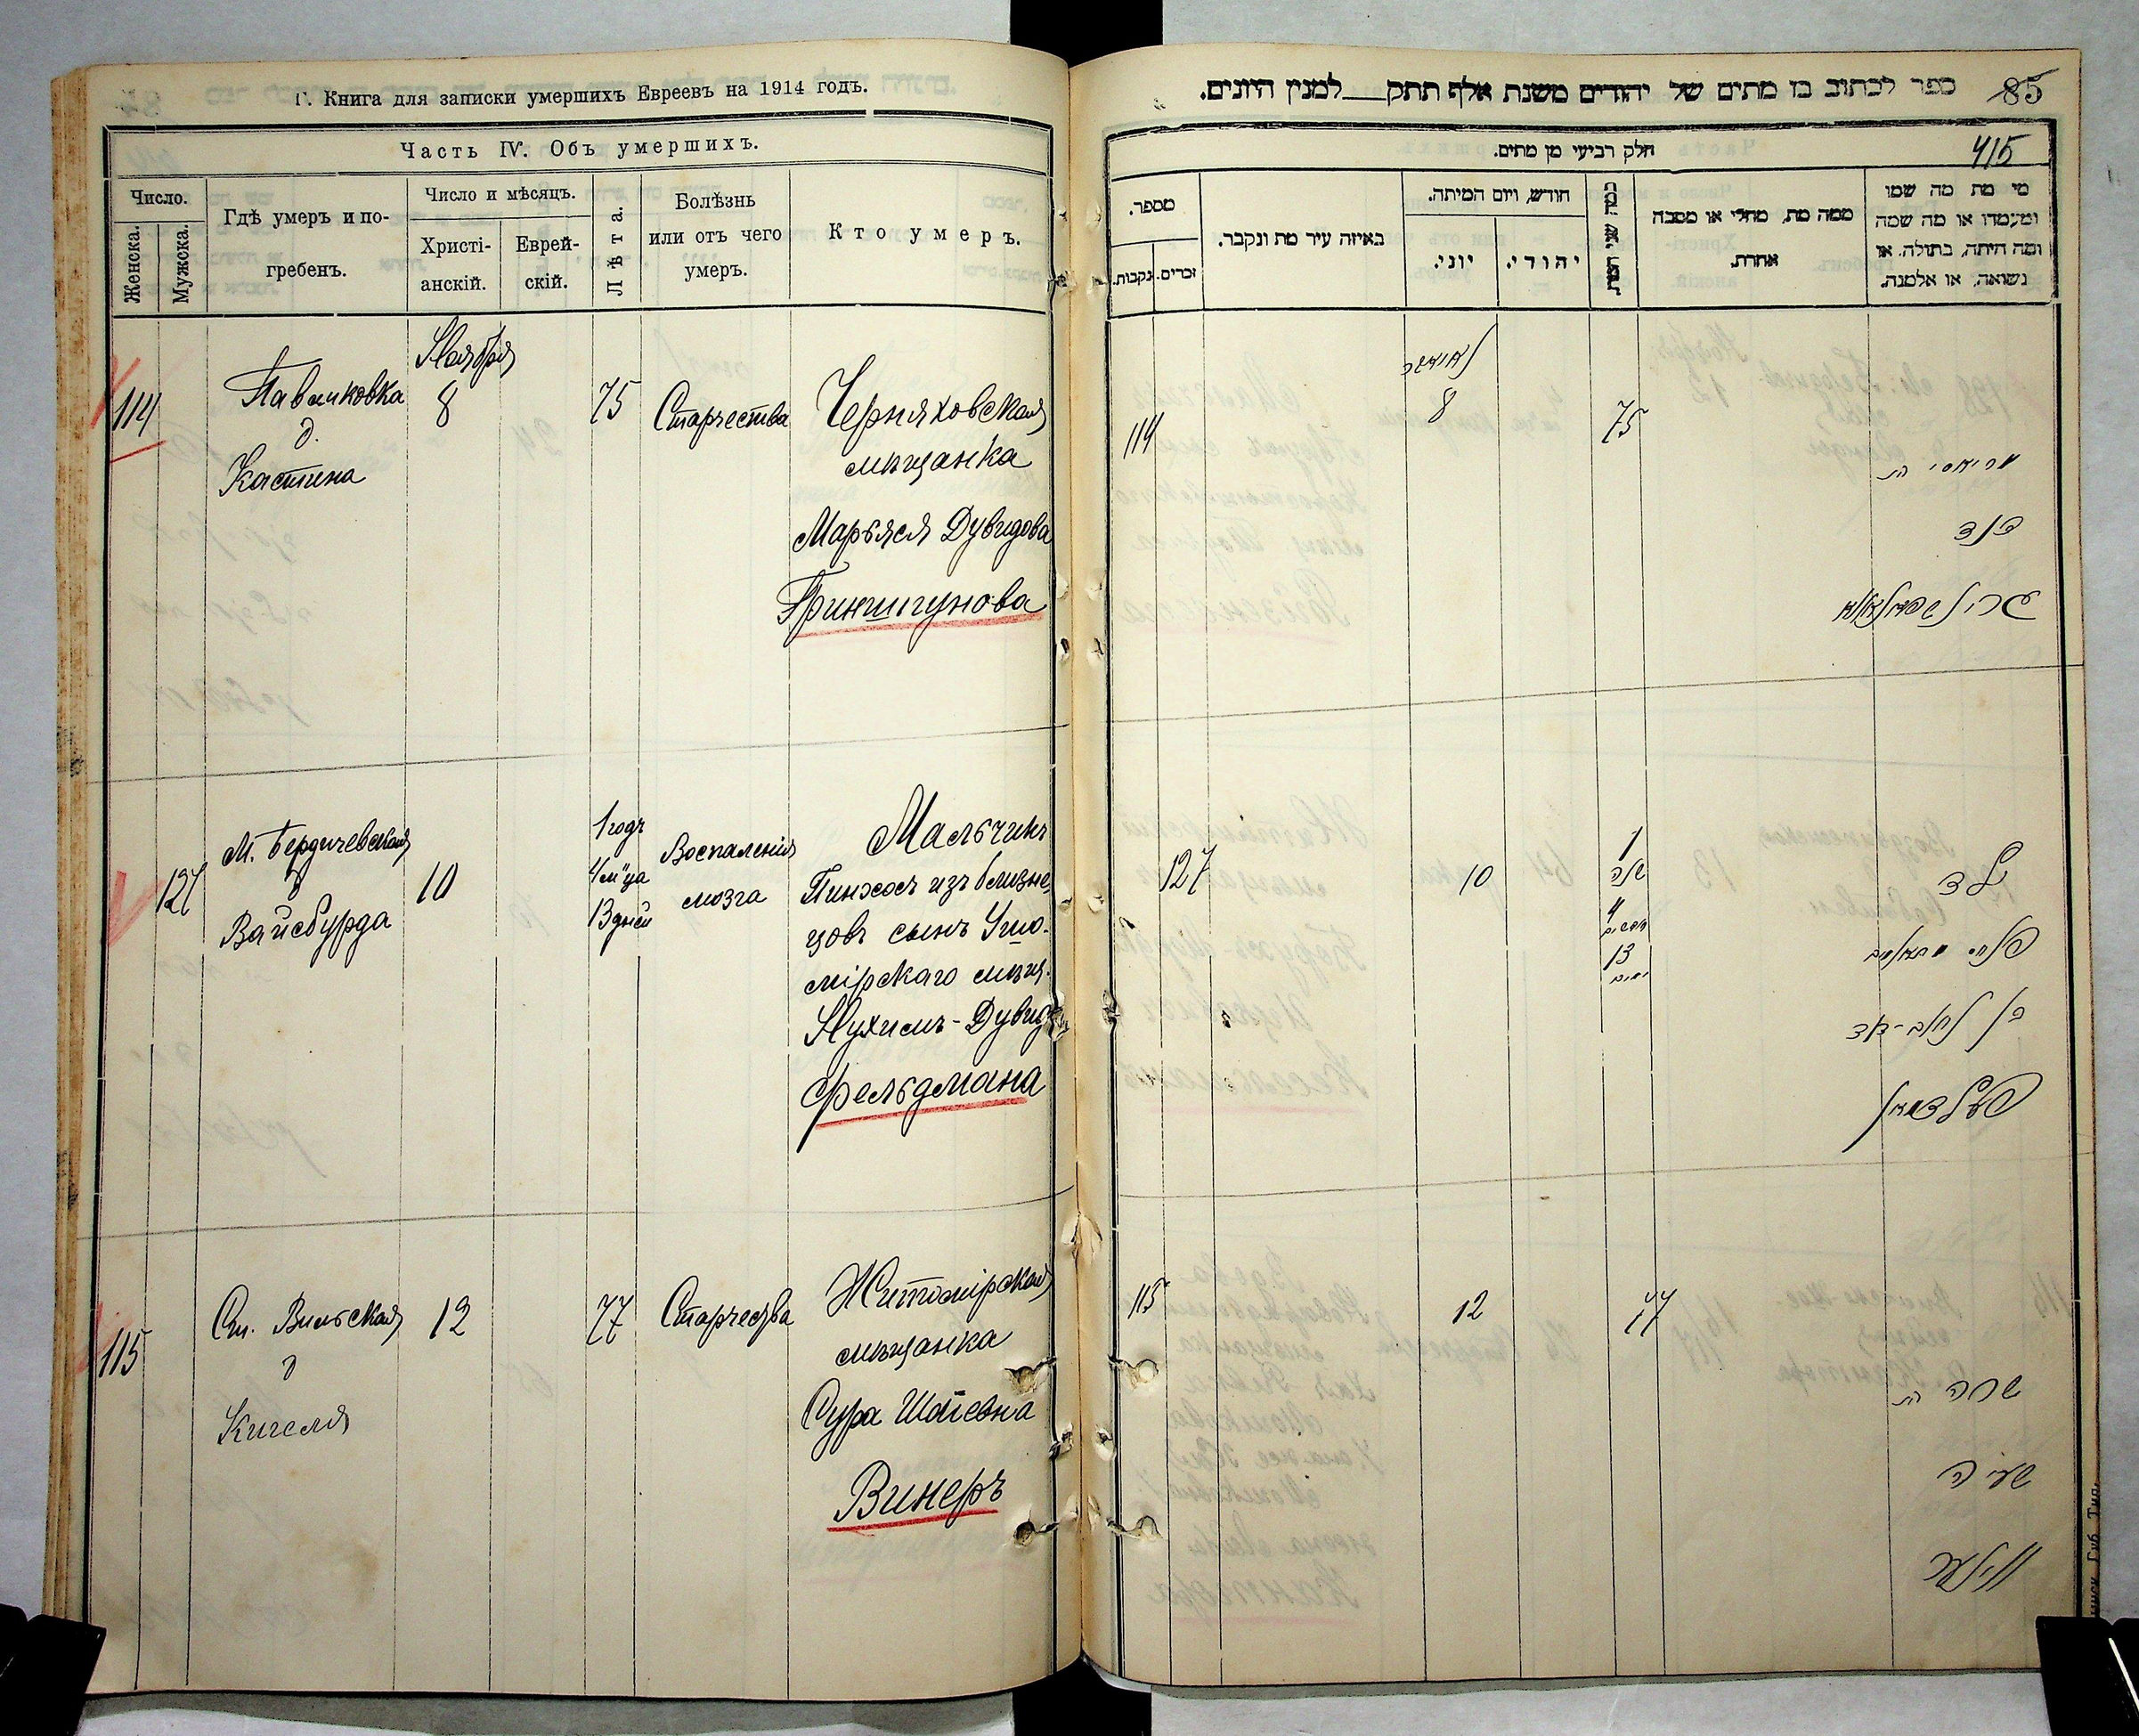 Г. Книга для записки умершихъ Евреевъ на 1914 годъ.
Часть IV. Объ умершихъ.
Число.
Женска.
Мужска.
Гдѣ умеръ и по-
гребенъ.
Число и мѣсяцъ.
Христі-
анскій.
Еврей-
скій.
Лѣта.
Болѣзнь
или отъ чего
умеръ.
Кто умеръ.
Ноября
114
Павликовка
д.
Кастина
8
75
Старчества
Черняховская
мѣщанка
Марьяся Дувидова
Гриншпунова
127
М. Бердичевская
д
Вайсбурда
10
1 годъ
4 м"ца
13 дней
Воспаленія
мозга
Мальчикъ
Пинхосъ изъ близне
цовъ сынъ Ушо-
мірскаго мѣщ.
Нухимъ-Дувид
Фельдмана
115
Ст. Вильская
д
Кигеля
12
77
Старчества
Житомірская
мѣщанка
Сура Шаевна
Винеръ
ספר לכתוב בו מתים של יהודים משנת אלף תתק___למנין היונים.
85
חלק רביעי מן מתים.
415
מספר.
נקבות.
זכרים.
באיזה עיר מת ונקבר.
חודש, ויום המיתה.
יוני.
יהודי.
כמה שני המת
ממה מת, מחלי או מסבה
אחרת.
מי מת מה שמו
ומעמדו או מה שמה
ומה היתה, בתולה, או
נשואה, או אלמנה.
114
8
75
מריאסי בת
דוד
127
10
1
שנה
4
חדשים
13
ימים
ילד
בן נחום-דוד
פעלדמאן
115
12
77
שרה בת
שעיה
ווינער